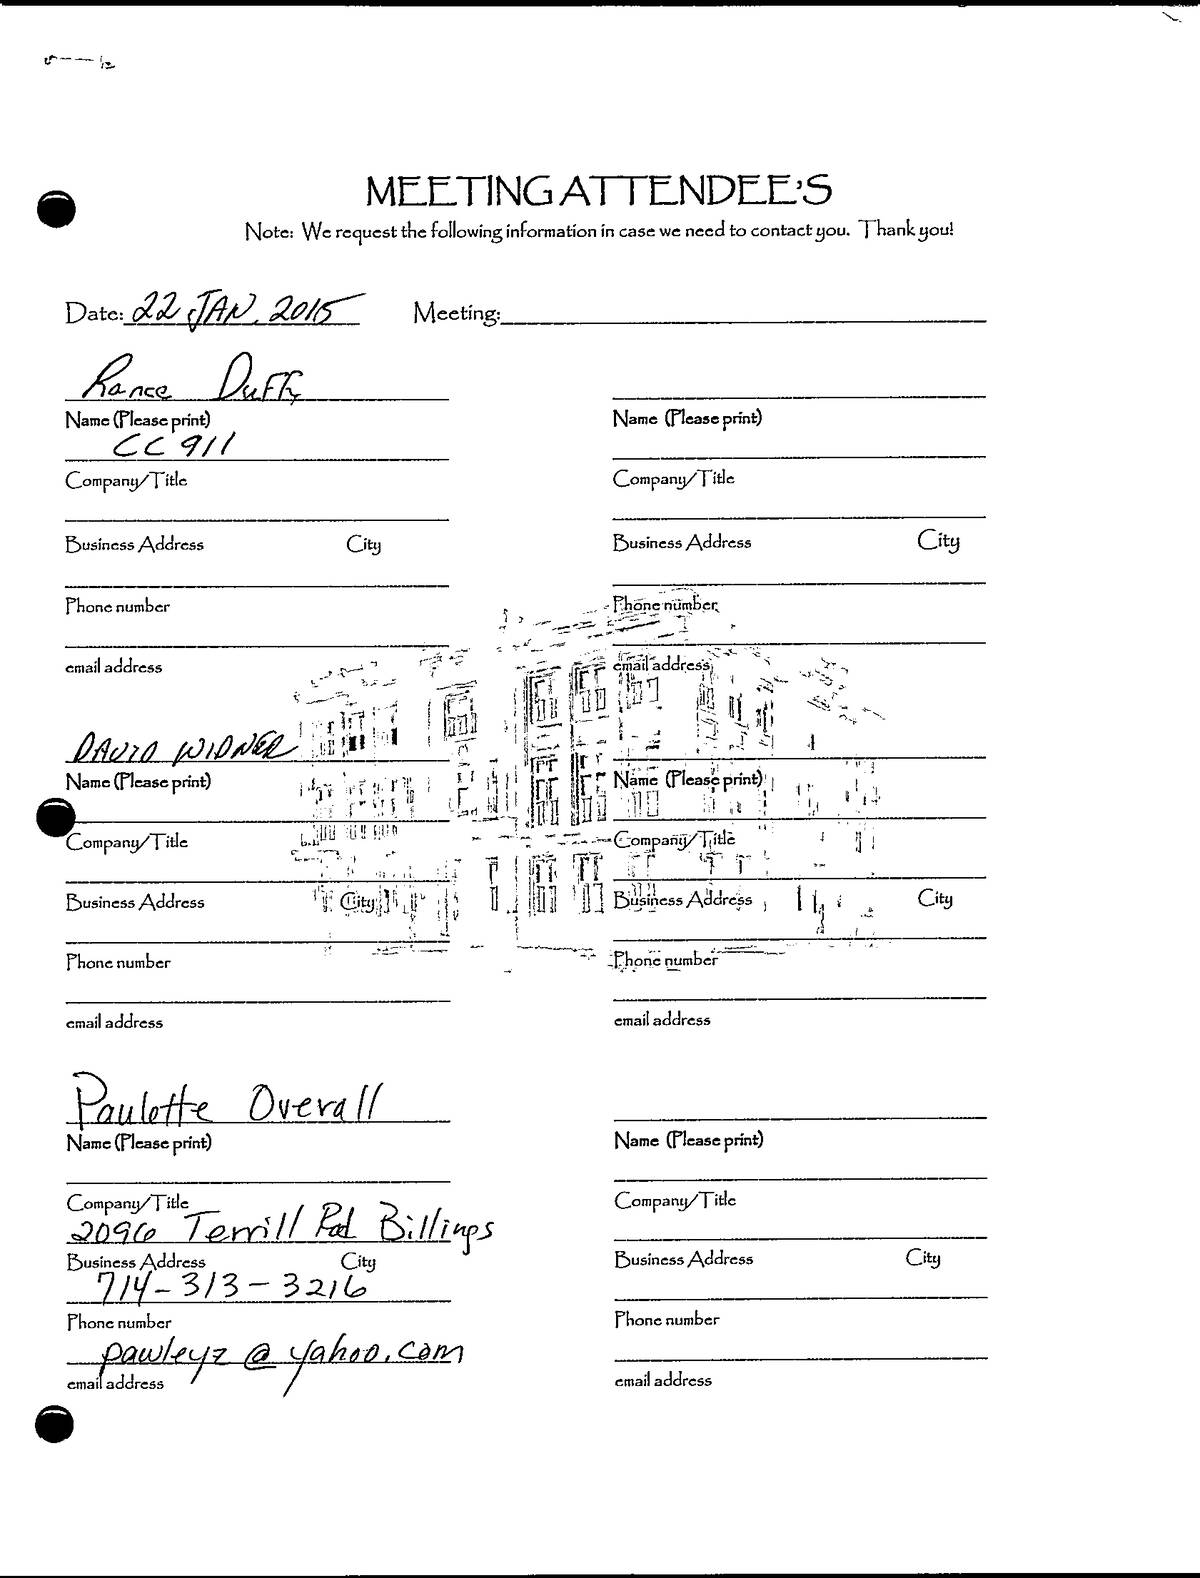 MEETING ATTENDEE'S
Note: We request the following information in case we need to contact you. Thank you!
Date: 22 JAN. 2015 Meeting:
Rance Duffy
Name (Please print) Name (Please print)
CC 911
Company/Title Company/Title
Business Address City Business Address City
Phone number Phone number
email address email address
DAVID WIDNER
Name (Please print) Name (Please print)
Company/Title Company/Title
Business Address City Business Address City
Phone number Phone number
email address email address
Paulette Overall
Name (Please print) Name (Please print)
Company/Title Company/Title
2096 Terrill Rd Billings
Business Address City Business Address City
714-313-3216
Phone number Phone number
pawleyz@yahoo.com
email address email address